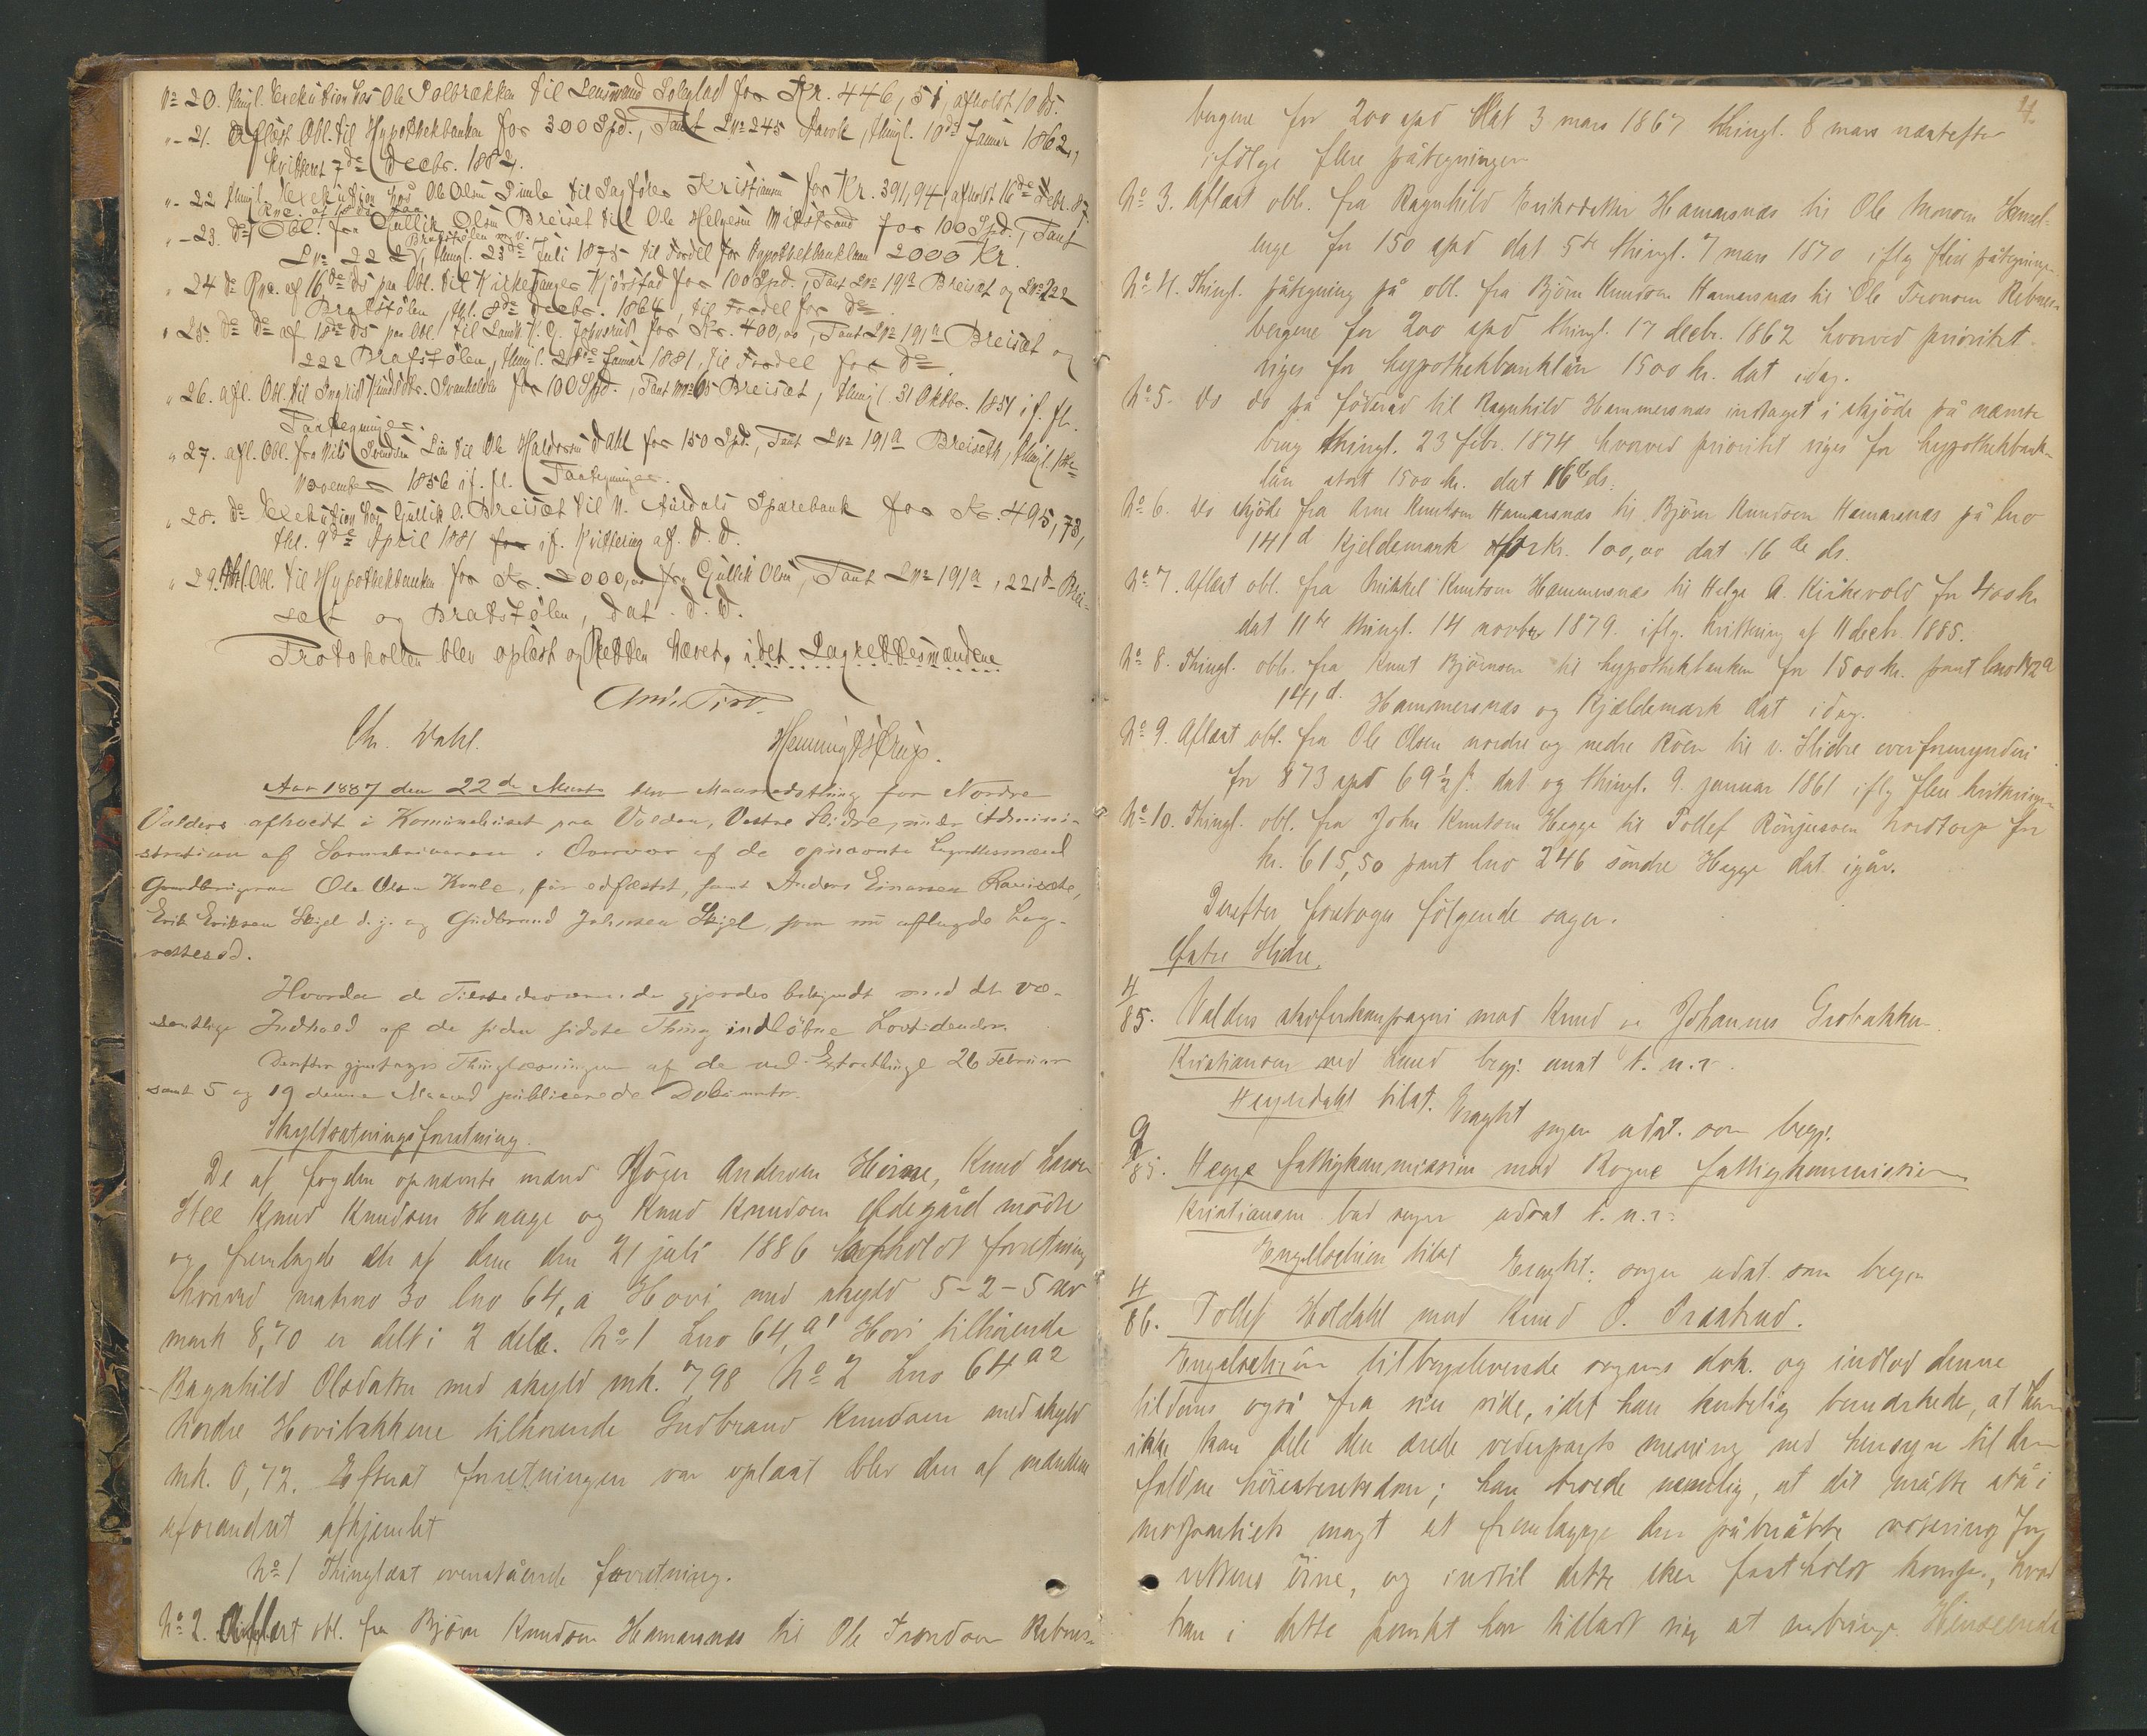 No 20. Thingl. Exekution hos Ole Polbrækken til Lensmand Soleglad for Kr. 446,51, afholdt 10 ds.
" - 21. Aflæst Obl. til Hypothekbanken for 300 Spd., Pant Lno 245 , thingl. 10de Januar 1862,
kvitteret 7de Decbr. 1882.
" - 22 Thingl. Exekution hos Ole Olsen til Sagfører Kristiansen for Kr. 391,94, afholdt 16de Febr. 87.
" - 23. do Obl. fra Gullik Olsen Breiset til Ole Helgesen for 100 Spd., Pant
Lno 222 Bratstølen m.v., thingl. 23de Juli 1875 til Fordel for Hypothekbanklaan 2000 Kr.
" 24 do af 16de ds paa Obl. til Kirkesanger Kjørstad for 100 Spd., Pant Lno 191a Breiset og Lno 222
Bratstølen, thl. 8de Decbr. 1864, til Fordel for do
" 25. do do af 18de ds paa Obl. til for Kr. 400,00, Pant Lno 191a Breiset og
222 Bratstølen, thingl. Januar 1881, til Fordel for do
" 26. afl. Obl. til Ingrid Knudsdtr. for 100 Spd., Pant Breiset, thingl. 31 Oktbr. 1851 if. fl.
Paategninger.
" 27. afl. Obl. fra Nils Svendsen Lie til Ole Haldorsen Dahl for 150 Spd., Pant Lno 191a Breiseth, thingl. 1ste
November 1856 if. fl. Paategninger.
" 28. do Exekution hos Gullik O. Breiset til N. Aurdals Sparebank for Kr. 495,73,
thl. 9de April 1881 if. Kvittering af D. D.
" 29. Thl. Obl. til Hypothekbanken for Kr. 2000,00 fra Gullik Olsen, Pant Lno 191a, 221d Brei-
set og Bratstølen, dat. D. D.
Protokollen blev oplæst og Retten hævet, idet Lagrettesmændene
Chr. Wahl. Henning
Aar 1887 den 22de Marts blev Maanedsthing for Nordre
Valders afholdt i Kommunehuset paa Volden, Vestre Slidre, under Admini-
stration af Sorenskriveren i Overvær af de opnævnte Lagrettesmænd
Gaardbrugerne Ole Olsen , før edfæstet, samt Anders Einarsen ,
Erik Eriksen d. y. og Gudbrand Johnsen , som nu aflagde Lag-
rettesed.
Hvorda de Tilstedeværende gjordes bekjendt med det væ-
sentlige Indhold af de siden sidste Thing indløbne Lovtidender.
Derefter gjentoges Thinglæsningen af de ved Extrathinge 26 Februar
samt 5 og 19 denne Maaned publicerede Dokumenter.
Skyldsætningsforretning.
De af fogden opnævnte mænd Andersen , Knud Larsen
Knud Knudsen Hauge og Knud Knudsen Ødegård mødte
og fremlagde en af dem den 21 juli 1886 afholdt forretning
hvorved matrno 30 lno 64,a Hovi med skyld 5-2-5 rev
mark 8,70 er delt i 2 dele. No 1 Lno 64,a1 Hovi tilhørende
Ragnhild Olsdatter med skyld mk. 7,98 No 2 Lno 64a2
nordre Hovibakkene tilhørende Gudbrand Knudsen med skyld
mk. 0,72. Efterat forretningen var oplæst blev den af mændene
uforandret afhjemlet
No 1 Thinglæst ovenstående forretning.
No 2. Aflæst obl. fra Bjørn Knudsen Hamarsnæs til Ole Trondsen Rebne-
4
bergene for 200 spd dat 3 mars 1867 thingl. 8 mars næstefter
ifölge flere påtegninger
No 3. Aflæst obl. fra Ragnhild Eriksdatter Hamarsnæs til Ole
enge for 150 spd dat 5te thingl. 7 mars 1870 iflg flere påtegninger
No 4. Thingl. påtegning på obl. fra Björn Knudsen Hamarsnæs til Ole Tronsen Rebne-
bergene for 200 spd thingl. 17 decbr. 1862 hvorved prioritet
viges for hypothekbanklån 1500 kr. dat idag.
No 5. do do på föderåd til Ragnhild Hammersnæs indtaget i skjöde på nævnte
brug thingl. 23 febr. 1874 hvorved prioritet viges for hypothekbank-
lån stort 1500 kr. dat 16de ds.
No 6. do skjöde fra Arne Knutsen Hamarsnæs til Björn Knudsen Hamarsnæs på lno
141d Kjeldemark for Kr. 100,00 dat 16de ds.
No 7. Aflæst obl. fra Mikkel Knutsen Hammersnæs til Helge A. Kirkevold for 400 kr
dat 11te thingl. 14 novbr 1879. iflg. kvittering af 11 decbr. 1885.
No 8. Thingl. obl. fra Knut Björnsen til hypothekbanken for 1500 kr. pant lno 142a
141d. Hammersnæs og Kjældemark dat idag.
No 9. Aflæst obl. fra Ole Olsen nordre og nedre Röen til v. Slidre overformynderi
for 873 spd 69 1/2 s. dat og thingl. 9. januar 1861 iflg flere kvitteringer
No 10. Thingl. obl. fra John Knutsen Hegge til Tollef for
kr. 615,50 pant lno 246 söndre Hegge dat igår.
Derefter foretoges fölgende sager.
Östre Slidre.
4/85. Valders skiferkompagni mod Knud og Johannes Grobakken
Kristiansen ved Knud begj. utsat t. n. r.
Heyerdahl tilst. Eragtet sagen udst. som begj.
9/85. Hegge fattigkommission mod Rogne fattigkommission
Kristiansen bad sagen udsat t. n. r.
Engelschiøn tilst Eragtet: sagen udsat som begjært
4/86. Tollef Holdahl mod Knud O. Praastrud.
Engelschiøn tilbageleverede sagens dok. og indlod denne
tildoms også fra sin side, idet han kortelig bemærkede, at han
ikke kan dele den ærede vederparts mening med hensyn til den
faldne höiesteretsdom; han troede nemlig, at det måtte stå i
modpartiets magt at fremlægge den påberåbte votering for
rettens öine, og indtil dette sker fastholdt komp., hvad
han i dette punkt har tilladt sig at anbringe. Henseende